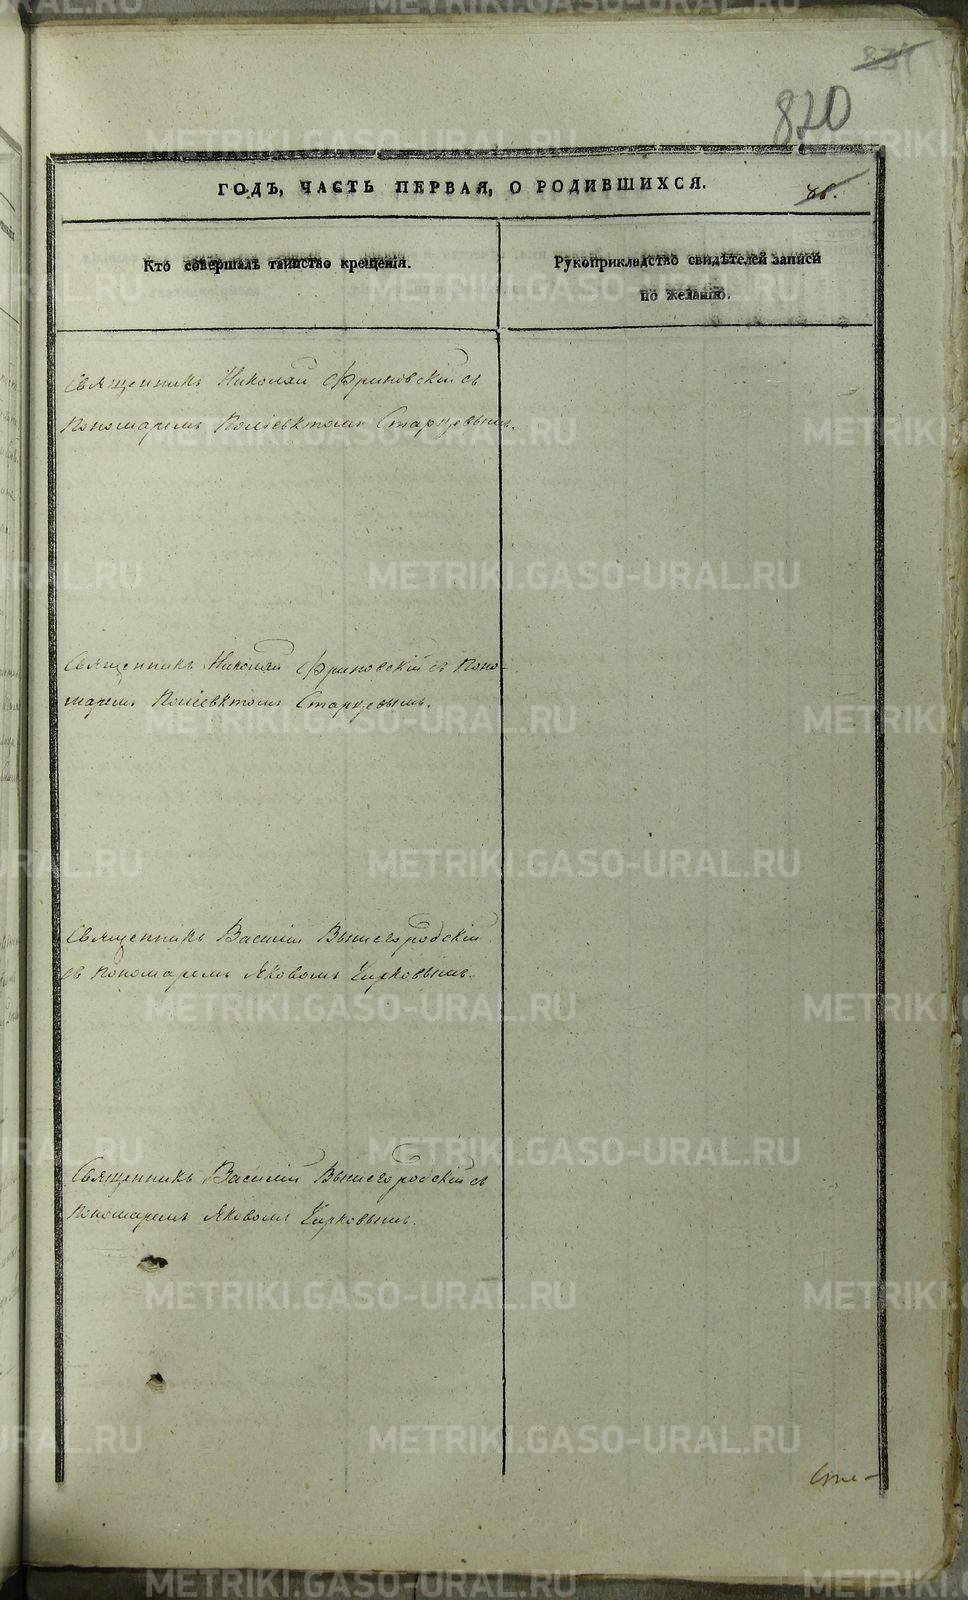 831
870
ГОДЪ, ЧАСТЬ ПЕРВАЯ, О РОДИВШИХСЯ.
86.
Кто совершалъ таинство крещенія.
Рукоприкладство свидѣтелей записи
по желанію.
Священникъ Николай Фриновскій съ
Пономаремъ Поліевктомъ Старцевымъ.
Священникъ Николай Фриновскій съ Поно-
маремъ Поліевктомъ Старцевымъ.
Священникъ Василій Вышегородскій
съ пономаремъ Яковомъ Чирковымъ.
Священникъ Василій Вышегородскій съ
пономаремъ Яковомъ Чирковымъ.
METRIKI.GASO-URAL.RU